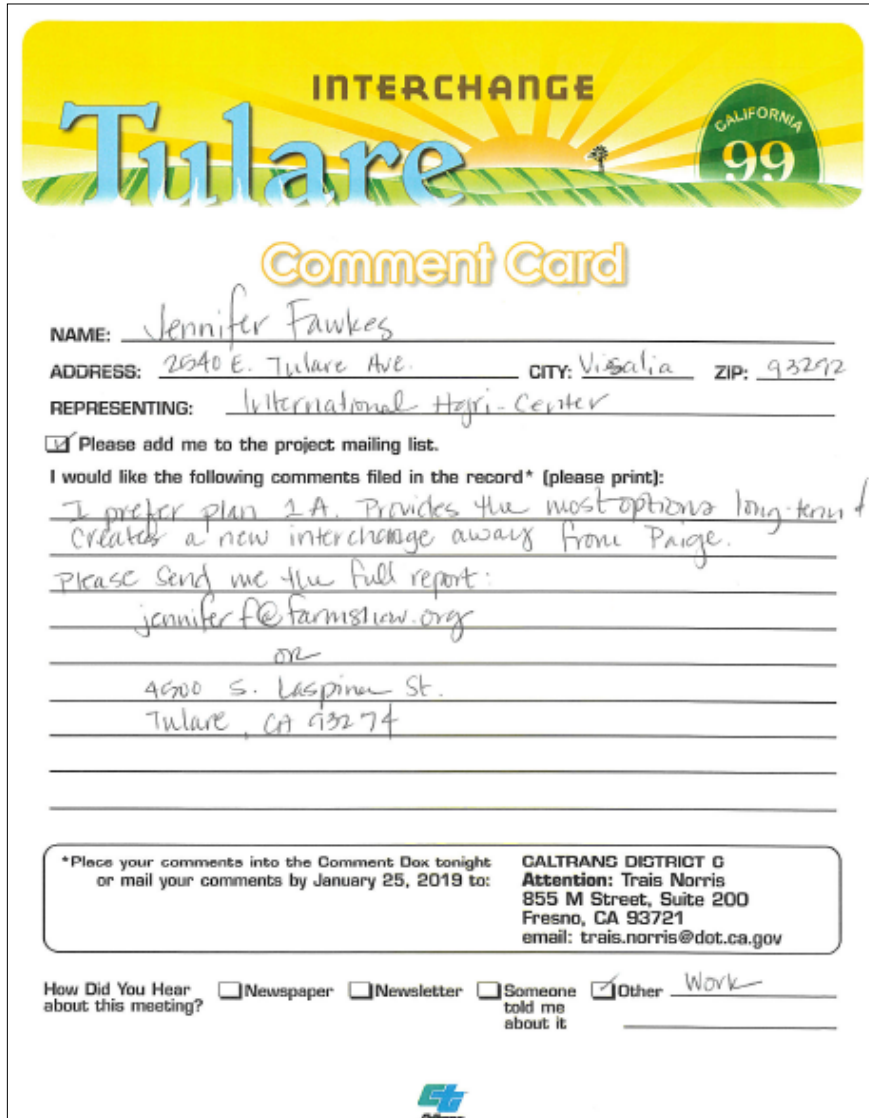 INTERCHANGE
Tulare
CALIFORNIA
99
Comment Card
NAME: Jennifer Fawkes
ADDRESS: 2540 E. Tulare Ave. CITY: Visalia ZIP: 93292
REPRESENTING: International Agri-Center
Please add me to the project mailing list.
I would like the following comments filed in the record* (please print):
I prefer plan 1A. Provides the most options long-term &
creates a new interchange away from Paige.
Please send me the full report:
jenniferf@farmshow.org
or
4500 S. Laspina St.
Tulare, CA 93274
*Place your comments into the Comment Box tonight
or mail your comments by January 25, 2019 to:
CALTRANS DISTRICT 6
Attention: Trais Norris
855 M Street, Suite 200
Fresno, CA 93721
email: trais.norris@dot.ca.gov
How Did You Hear
about this meeting?
Newspaper
Newsletter
Someone
told me
about it
Other Work